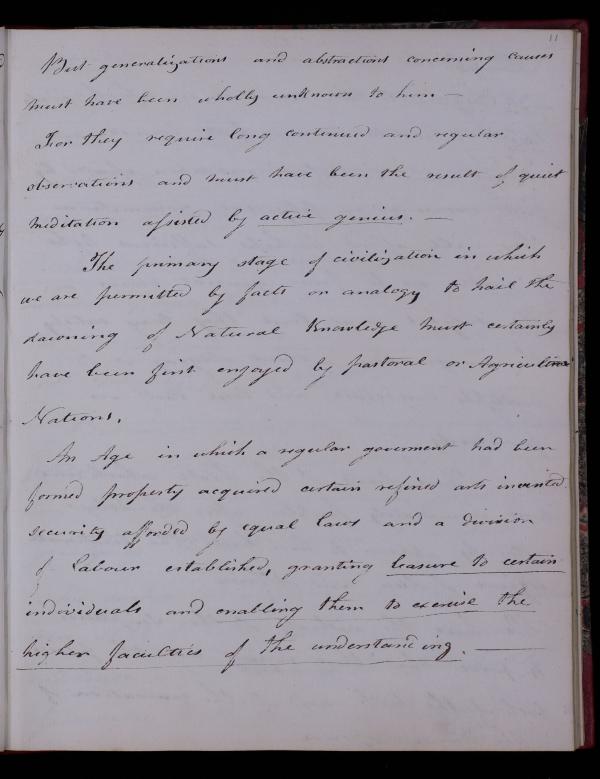 11
But generalizations and abstractions concerning causes
must have been wholly unknown to him —
For they require long continued and regular
observations and must have been the result of quiet
meditation assisted by active genius. —
The primary stage of civilization in which
we are permitted by facts or analogy to hail the
dawning of Natural Knowledge must certainly
have been first enjoyed by pastoral or Agricultural
Nations.
An Age in which a regular goverment had been
formed property acquired certain refined arts invented
security afforded by equal laws and a division
of Labour established, granting leasure to certain
individuals and enabling them to exercise the
higher faculties of the understanding. —